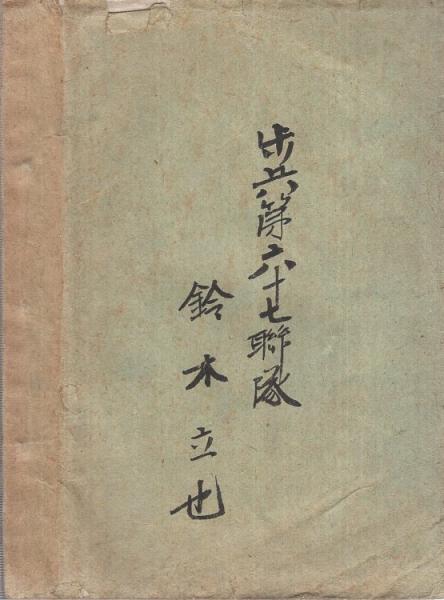 歩兵第六十七聯隊
鈴木立也